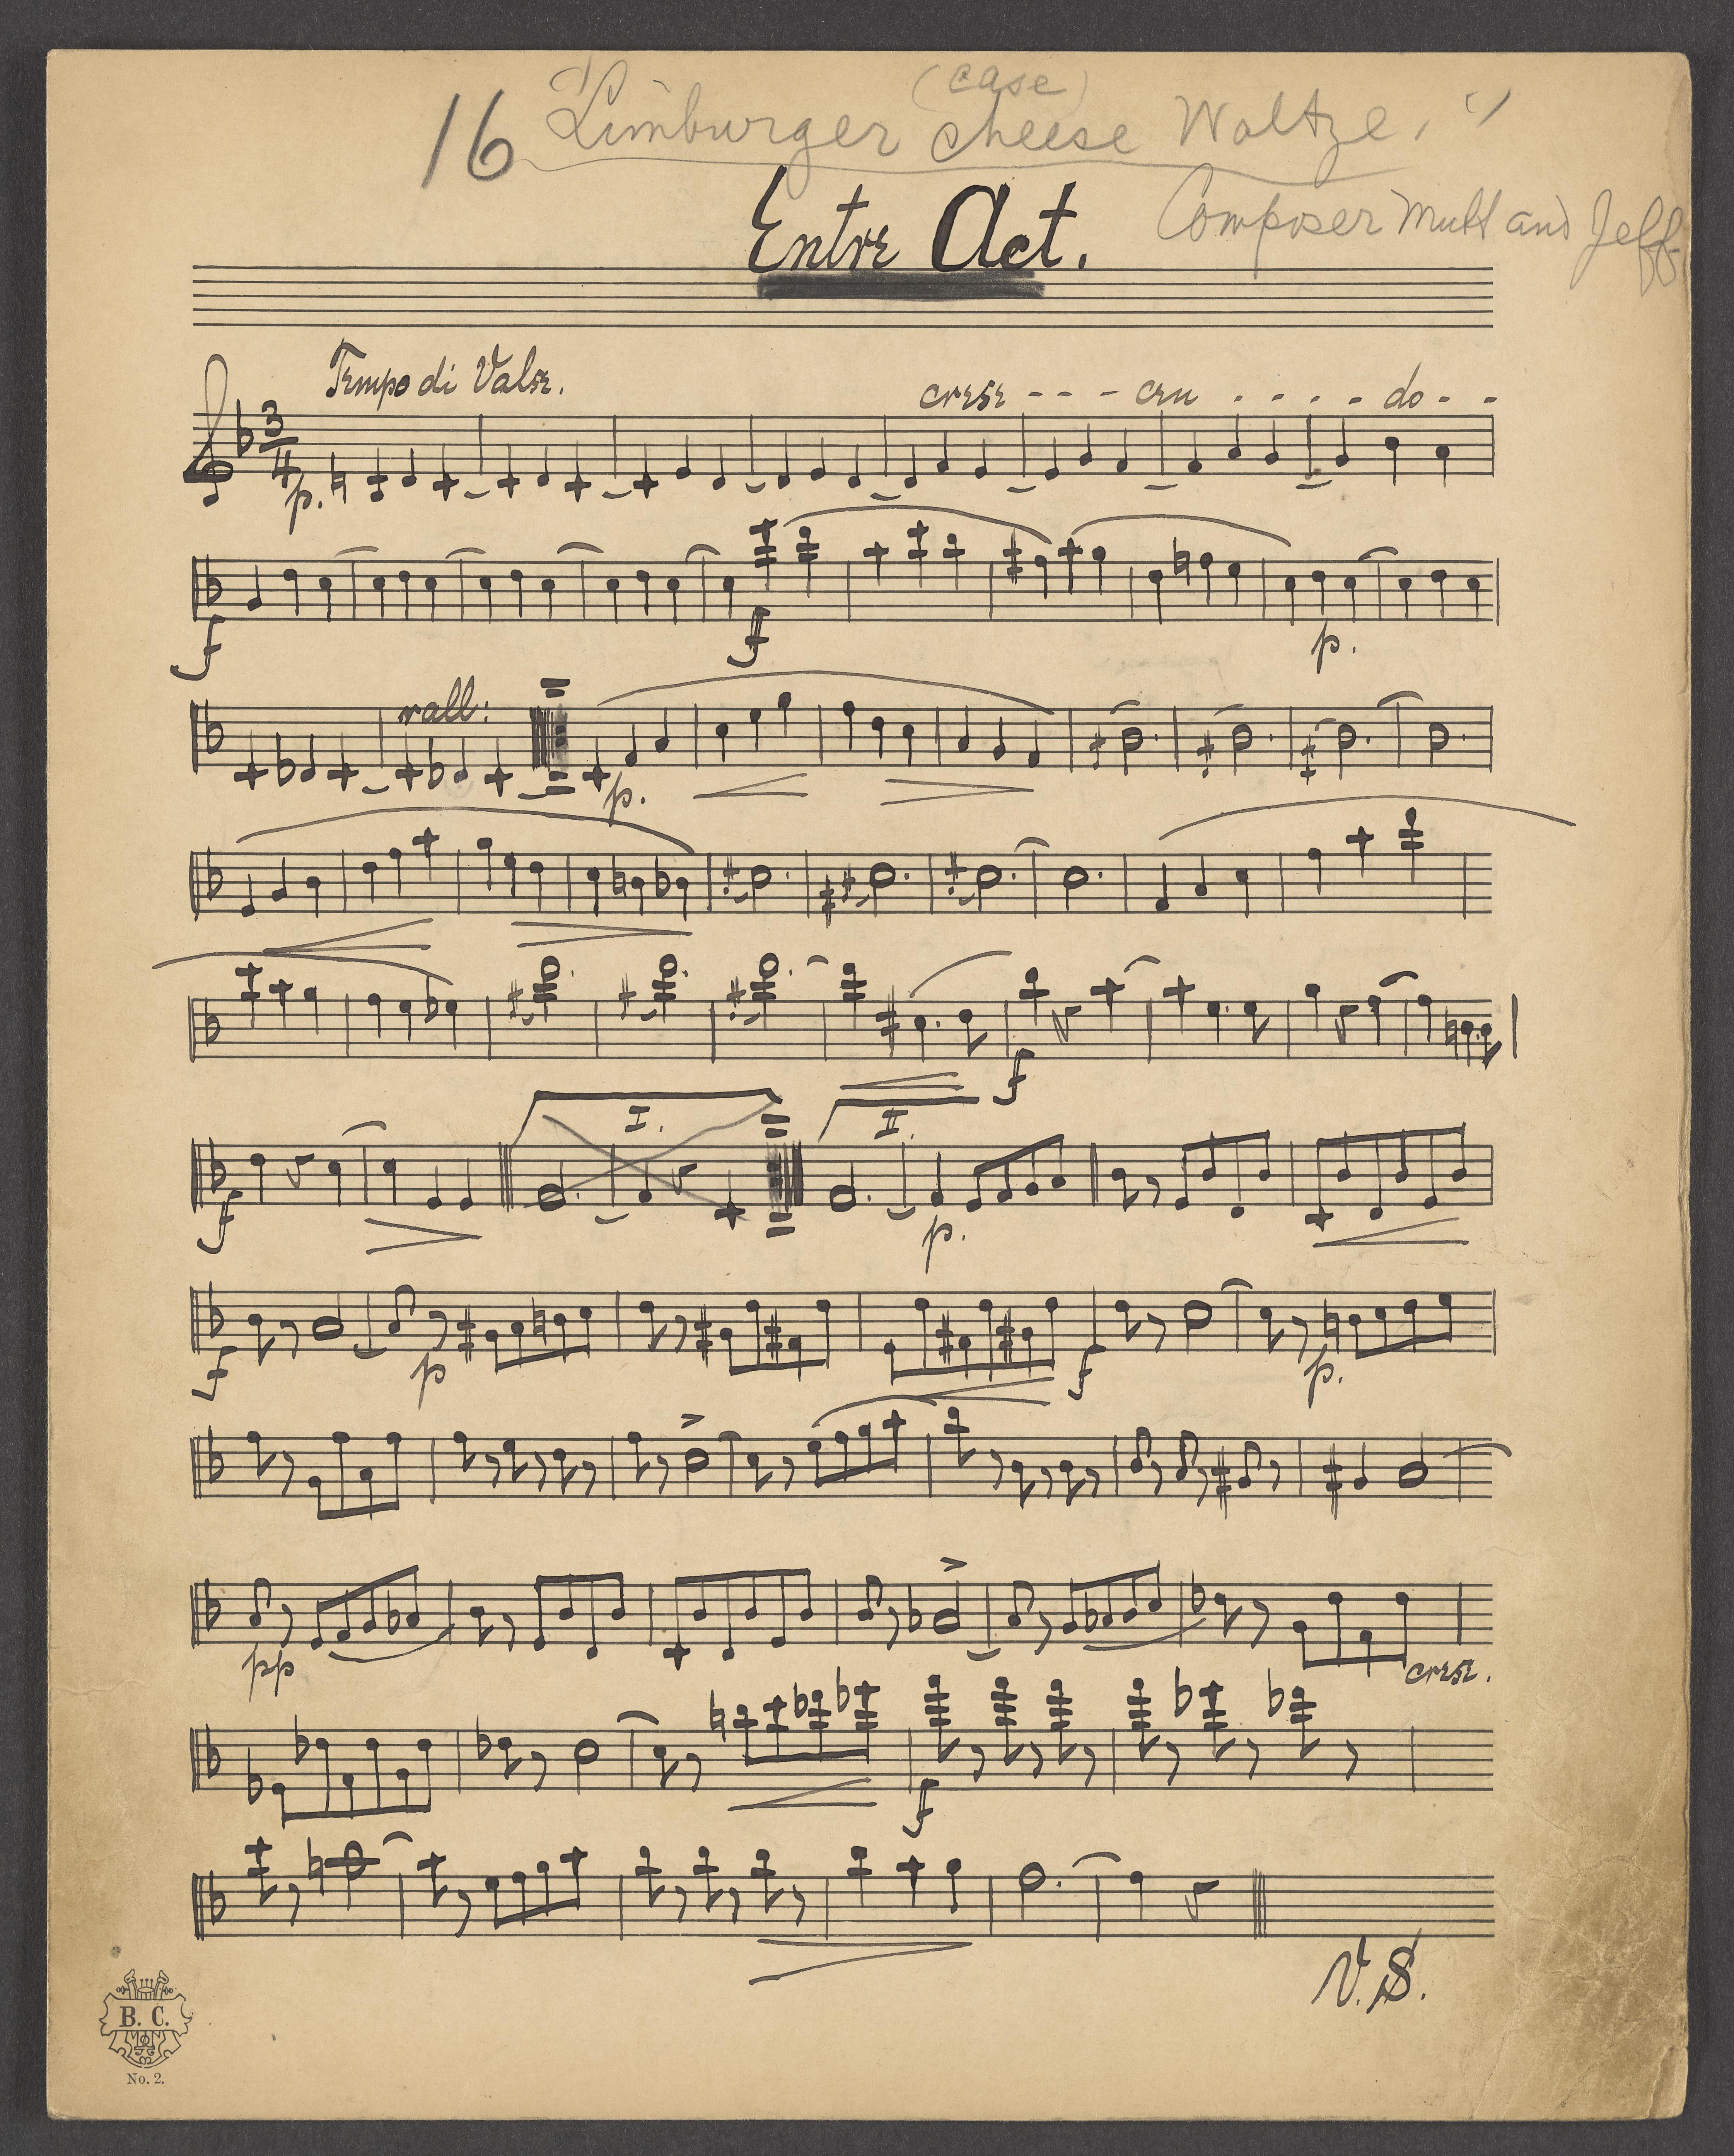 (case)
16 "Limburger cheese Waltze."
Entre Act.
Composer Mutt and Jeff
Tempo di Valse.
cresc - - - cen - - - - do - -
3
4
p.
f
f
p.
rall:
p.
f
I.
II.
f
p.
f
p
f
p.
pp
cresc.
f
V.S.
B. C.
No. 2.